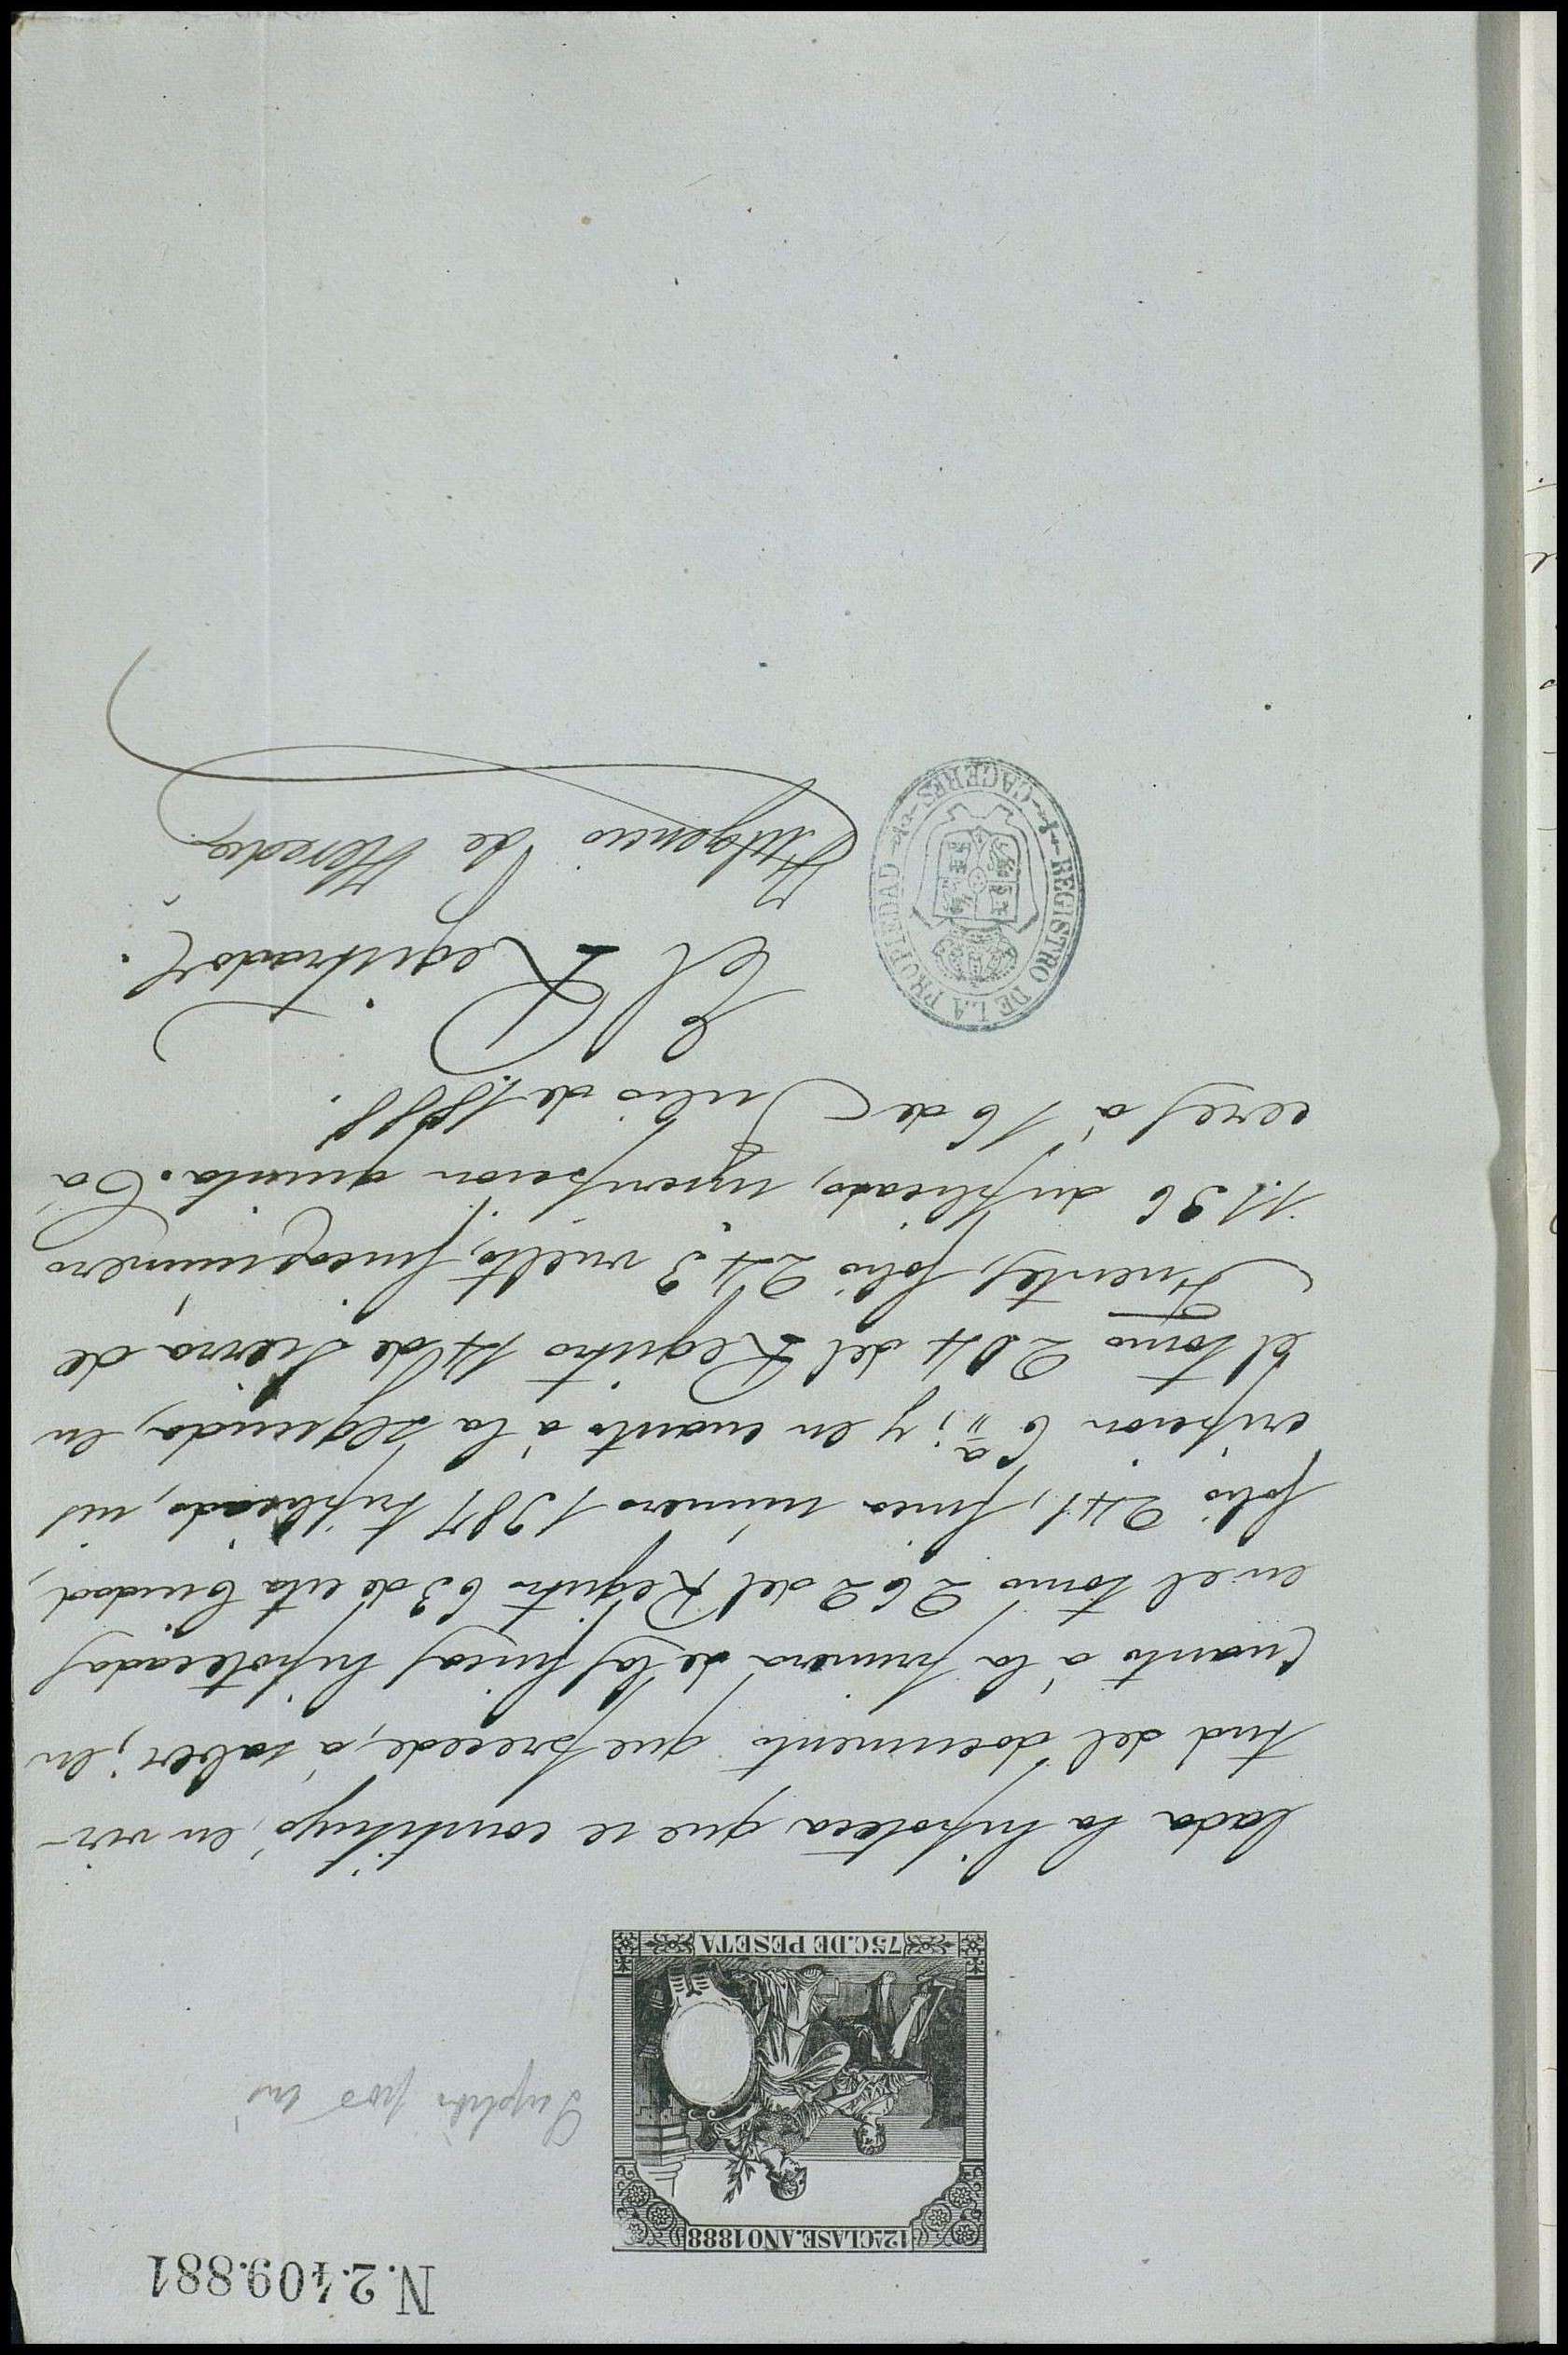 N. 2.409.881
12ª CLASE. AÑO 1888
75 C. DE PESETA
lada la hipoteca que se constituyó, en vir-
tud del documento que precede, á saber; en
cuanto á la primera de las fincas hipotecadas
en el tomo 262 del Registro 63 de esta Ciudad,
folio 241, finca número 1387 triplicado, ins
cripcion 6ª; y en cuanto á la segunda, en
el tomo 204 del Registro 14 de Sierra de
Fuentes, folio 243 vuelto, finca número
1.136 duplicado, inscripcion quinta. Cá
ceres á 16 de Julio de 1888.
El Registrador.
Fulgencio de Heredia
REGISTRO DE LA PROPIEDAD
CACERES